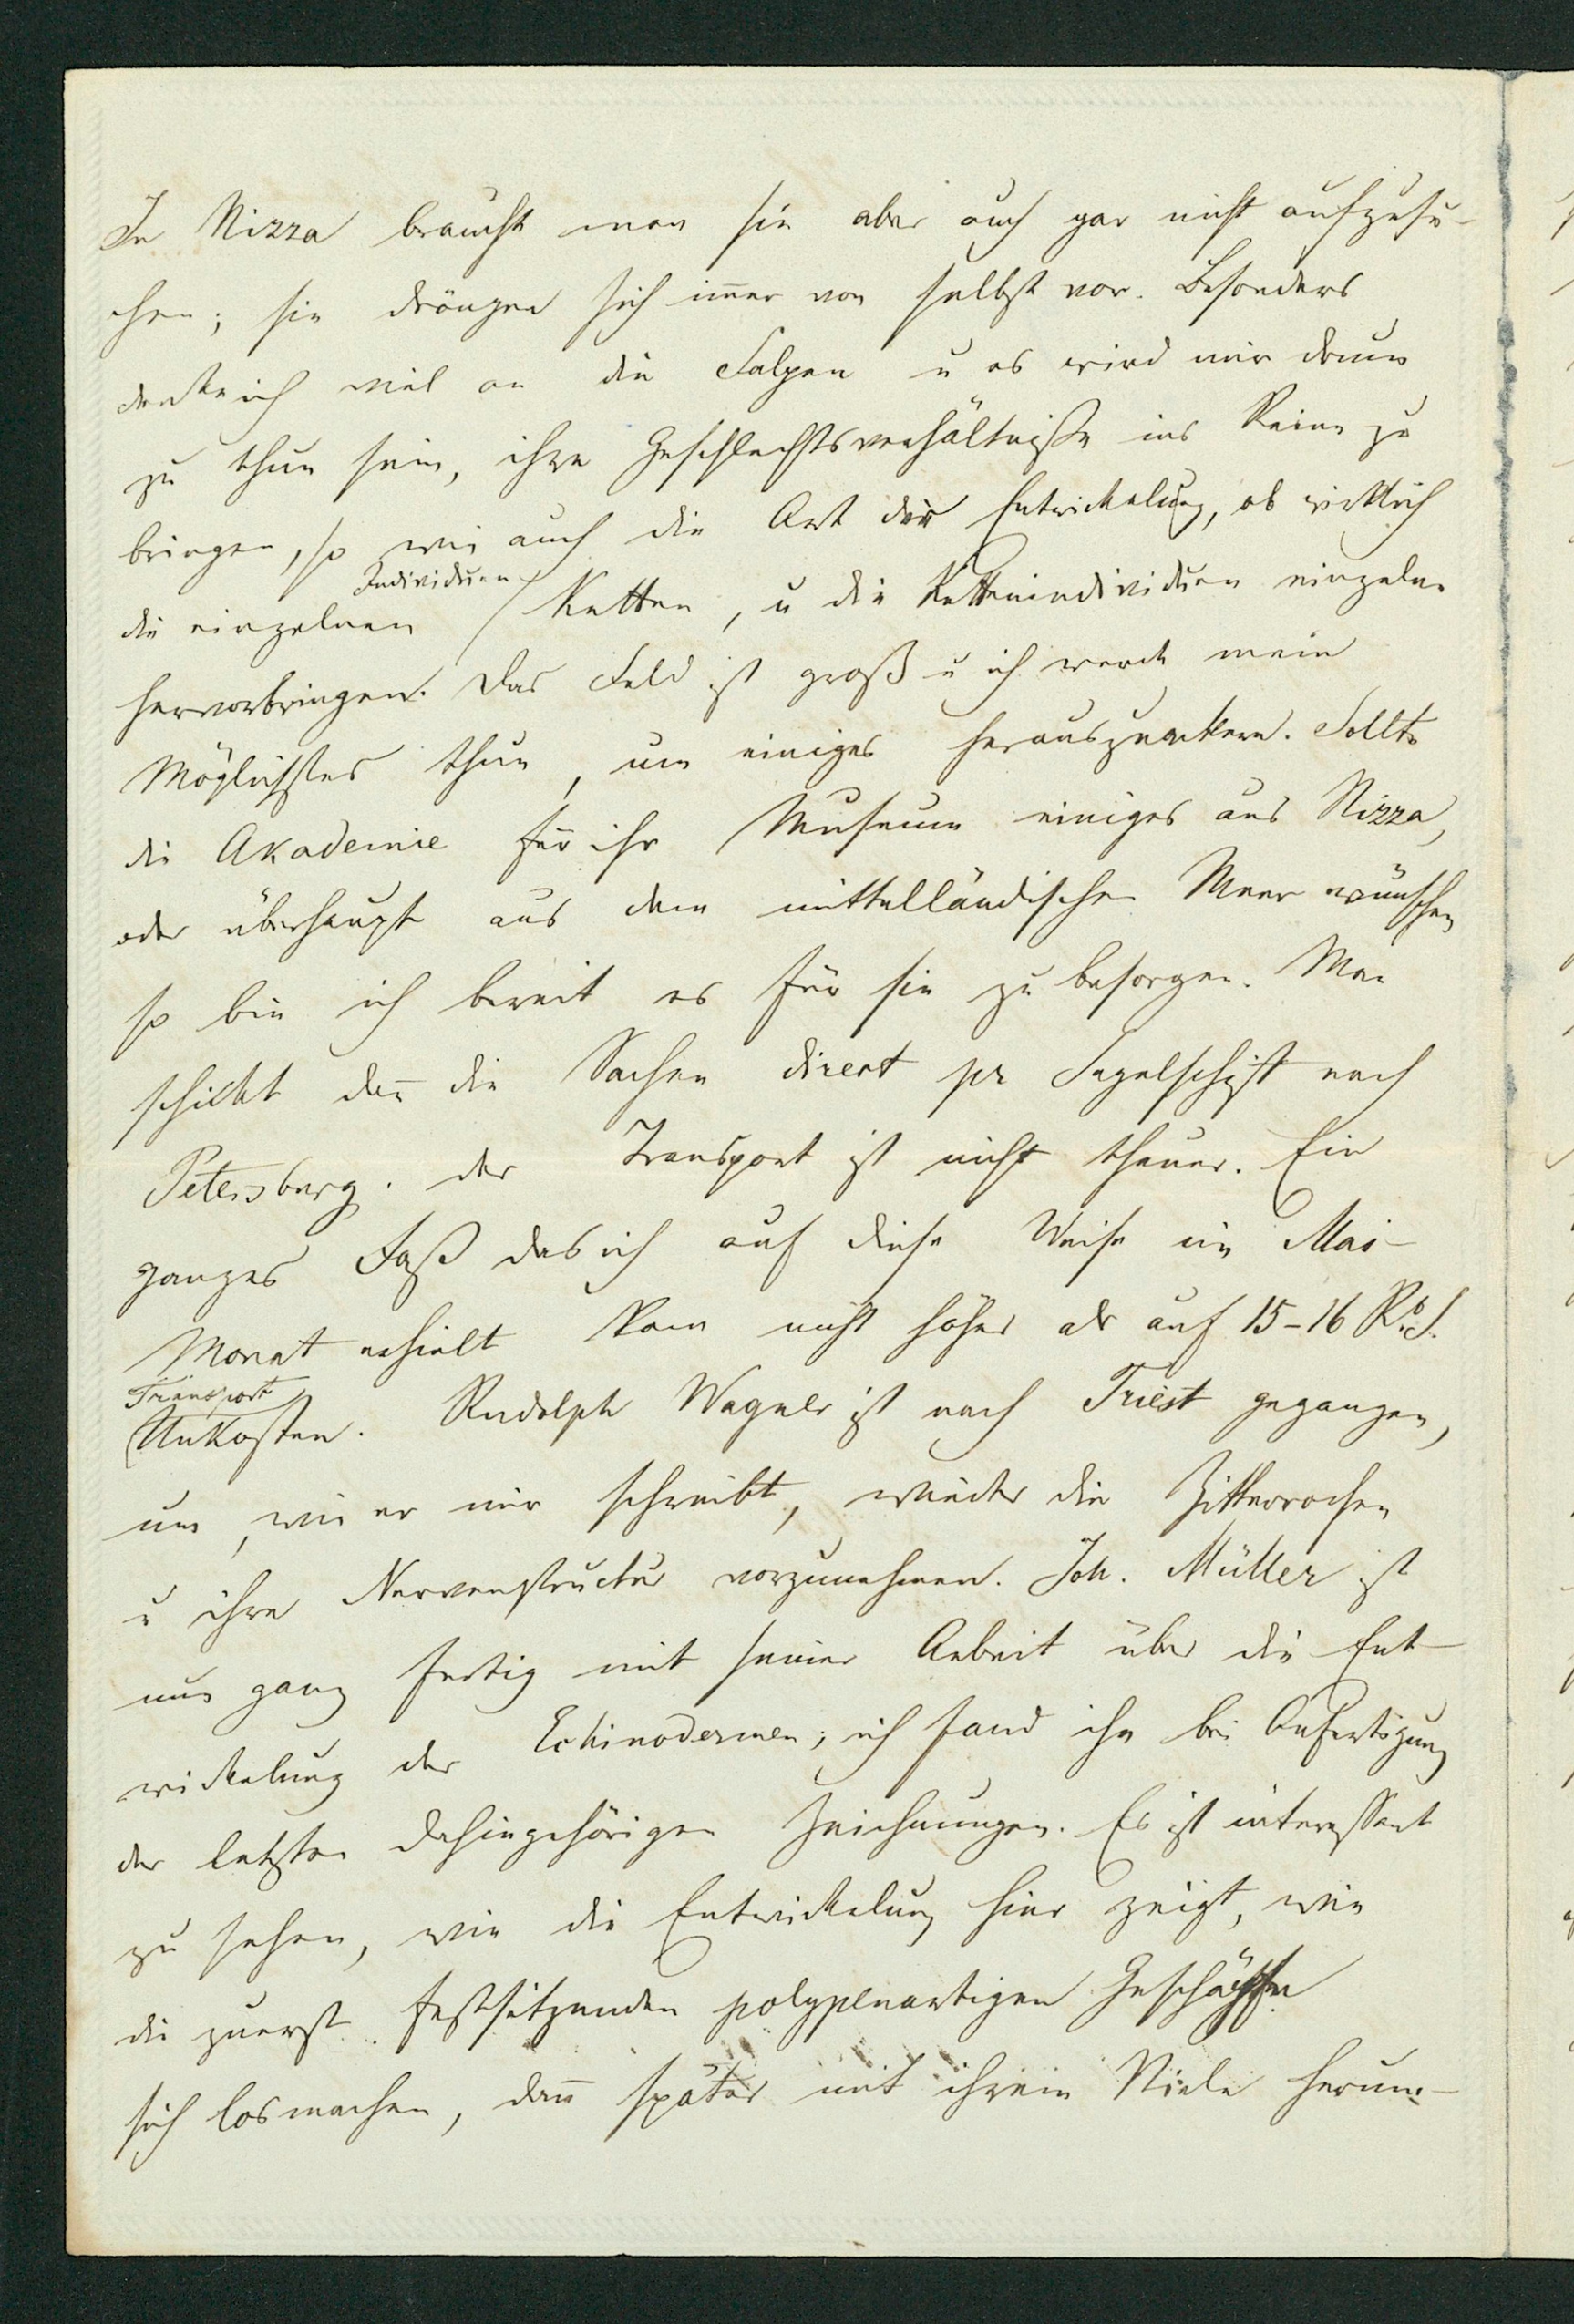 In Nizza braucht man sie aber auch gar nicht aufzusu-
chen; sie drängen sich im̅er von selbst vor. Besonders
denke ich viel an die Salpen u es wird mir drum
zu thun sein, ihre Geschlechtsverhältniße ins Reine zu
bringen, so wie auch die Art der Entwickelung, ob wirklich
die einzelnen Individuen Ketten, u die Kettenindividuen einzelne
hervorbringen. Das Feld ist groß u ich werde mein
Möglichstes thun, um einiges herauszuackern. Sollte
die Akademie für ihr Museum einiges aus Nizza,
oder überhaupt aus dem mittelländischen Meer wünschen
so bin ich bereit es für sie zu besorgen. Man
schickt dan̅ die Sachen direct pr Segelschiff nach
Petersburg. der Transport ist nicht theuer. Ein
ganzes Faß das ich auf diese Weise im Mai-
Monat erhielt kam nicht höher als auf 15-16 R. S.
Transport
Unkosten. Rudolph Wagner ist nach Triest gegangen,
um, wie er mir schreibt, wieder die Zitterrochen
u ihre Nervenstructur vorzunehmen. Joh. Müller ist
nun ganz fertig mit seiner Arbeit über die Ent-
wickelung der Echinodermen; ich fand ihn bei Anfertigung
der letzten dahingehörigen Zeichnungen. Es ist interessant
zu sehen, wie die Entwickelung hier zeigt, wie
die zuerst festsitzenden polypenartigen Geschöpfe
sich losmachen, dan̅ später mit ihrem Stiele herum-